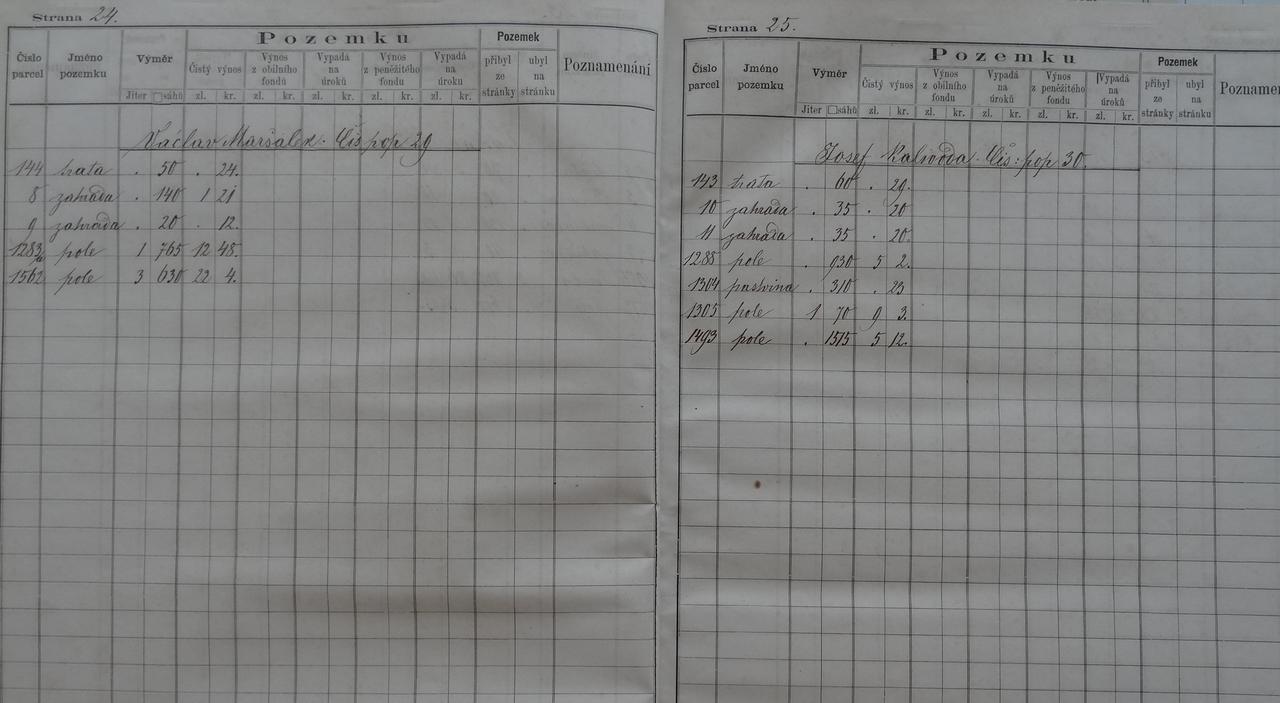 Strana 24.
Číslo parcel Jméno pozemku Výměr Pozemku Pozemek Poznamenání
Čistý výnos Výnos z obilního fondu Vypadá na úroků Výnos z peněžitého fondu Vypadá na úroku přibyl ze stránky ubyl na stránku
Jiter □sáhů zl. kr. zl. kr. zl. kr. zl. kr. zl. kr.
Václav Maršálek. Čís pop 29
144 trata . 50 . 24.
8 zahrada . 140 1 21
9 zahrada . 20 . 12.
1283/a pole 1 765 12 48.
1562 pole 3 630 22 4.
Strana 25.
Číslo parcel Jméno pozemku Výměr Pozemku Pozemek Poznamen
Čistý výnos Výnos z obilního fondu Vypadá na úroků Výnos z peněžitého fondu Vypadá na úroků přibyl ze stránky ubyl na stránku
Jiter □sáhů zl. kr. zl. kr. zl. kr. zl. kr. zl. kr.
Josef Kalivoda. Čís: pop 30.
143 trata . 60 . 29.
10 zahrada . 35 . 20
11 zahrada . 35 . 20.
1288 pole . 930 5 2.
1304 pastvina . 310 . 23
1305 pole 1 70 9 3.
1493 pole . 1515 5 12.